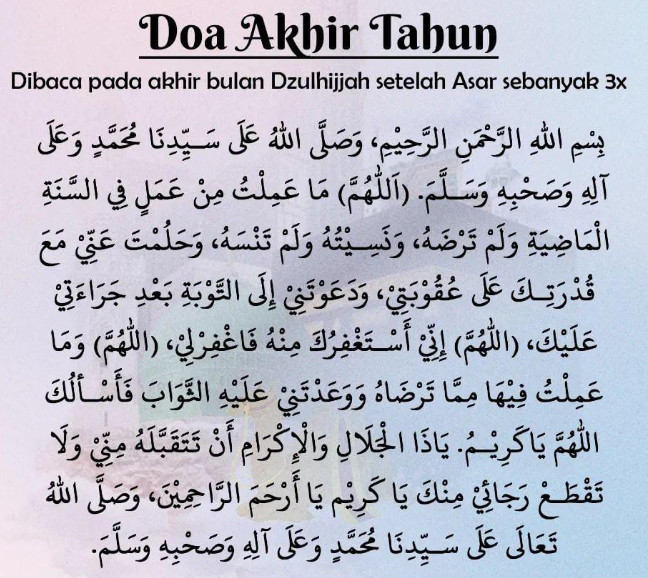 Doa Akhir Tahun
Dibaca pada akhir bulan Dzulhijjah setelah Asar sebanyak 3x
بِسْمِ اللهِ الرَّحْمَنِ الرَّحِيْمِ، وَصَلَّى اللهُ عَلَى سَـيِّدِنَا مُحَمَّدٍ وَعَلَى
آلِهِ وَصَحْبِهِ وَسَـلَّمَ. (اَللّٰهُمَّ) مَا عَمِلْتُ مِنْ عَمَلٍ فِي السَّنَةِ
الْمَاضِيَةِ وَلَمْ تَرْضَهُ، وَنَسِـيْتُهُ وَلَمْ تَنْسَهُ، وَحَلُمْتَ عَنِّيْ مَعَ
قُدْرَتِـكَ عَلَى عُقُوْبَتِيْ، وَدَعَوْتَنِيْ إِلَى التَّوْبَةِ بَعْدِ جَرَاءَتِيْ
عَلَيْكَ، (اللّٰهُمَّ) إِنِّيْ أَسْـتَغْفِرُكَ مِنْهُ فَاغْفِرْلِيْ، (اللّٰهُمَّ) وَمَا
عَمِلْتُ فِيْهَا مِمَّا تَرْضَاهُ وَوَعَدْتَنِيْ عَلَيْهِ الثَّوَابَ فَأَسْـأَلُكَ
اللّٰهُمَّ يَاكَرِيْـمُ. يَاذَا الْجَلَالِ وَالْإِكْرَامِ أَنْ تَتَقَبَّلَهُ مِنِّيْ وَلَا
تَقْطَـعْ رَجَائِيْ مِنْكَ يَا كَرِيْم يَا أَرْحَمَ الرَّاحِمِيْنَ، وَصَلَّى اللهُ
تَعَالَى عَلَى سَـيِّدِنَا مُحَمَّدٍ وَعَلَى آلِهِ وَصَحْبِهِ وَسَلَّمَ.